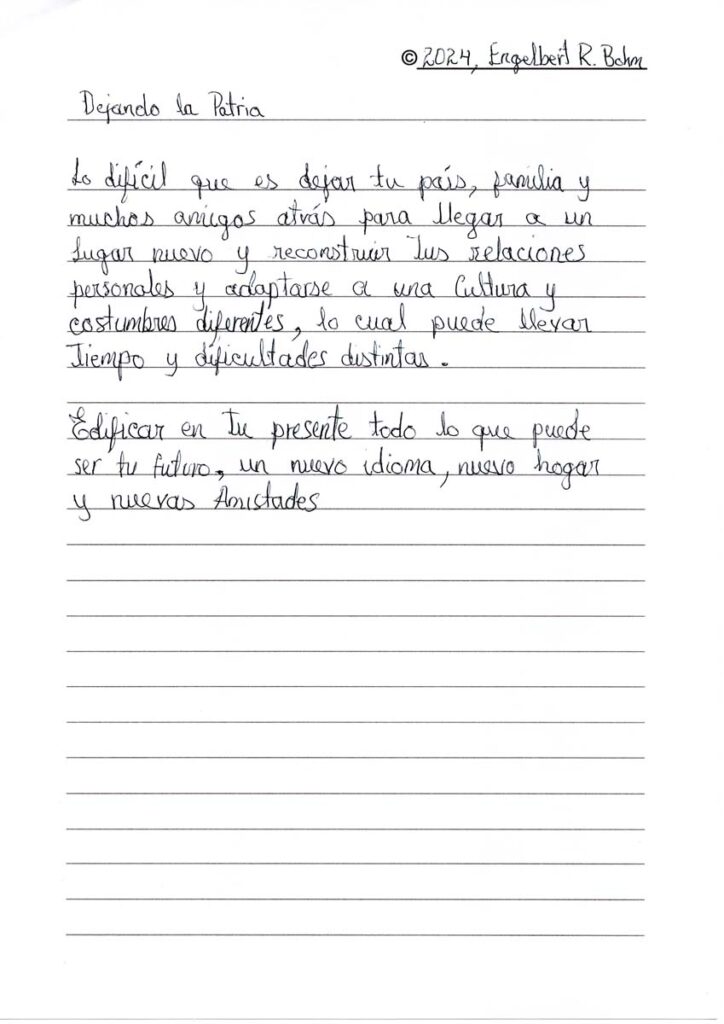 © 2024, Engelbert R. Bohm
Dejando la Patria
Lo difícil que es dejar tu país, familia y
muchos amigos atrás para llegar a un
lugar nuevo y reconstruir tus relaciones
personales y adaptarse a una Cultura y
costumbres diferentes, lo cual puede llevar
Tiempo y dificultades distintas.
Edificar en tu presente todo lo que puede
ser tu futuro, un nuevo idioma, nuevo hogar
y nuevas Amistades